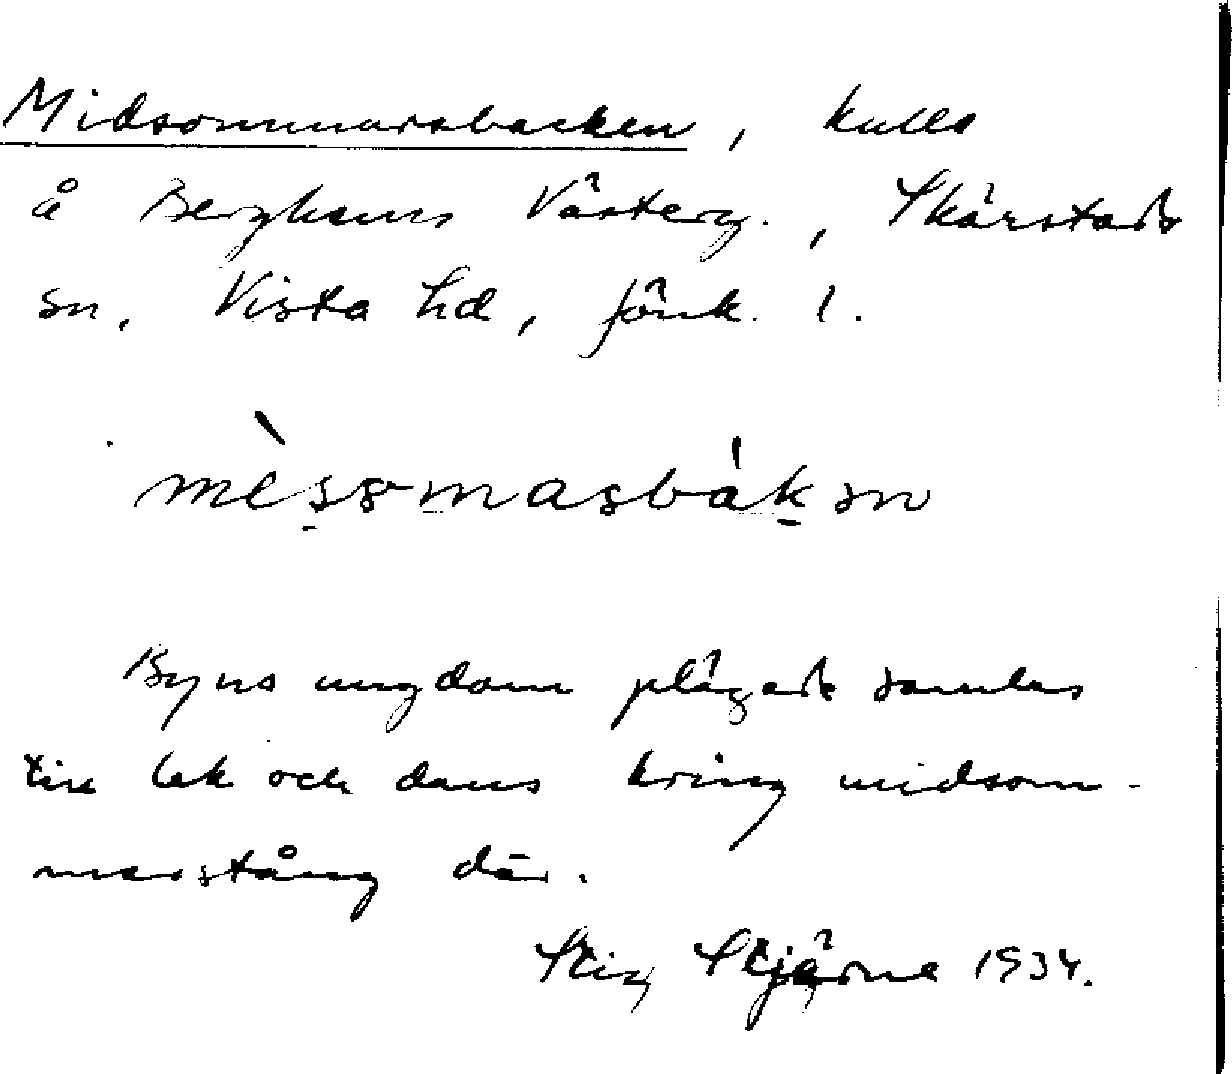 Midsommarsbacken, kulle
å Berghems Västerg., Skärstads
sn, Vista hd, Jönk. l.
mèssmasbákən
Byns ungdom plägade samlas
till lek och dans kring midsom-
marstång där.
Stig Stjärne 1934.